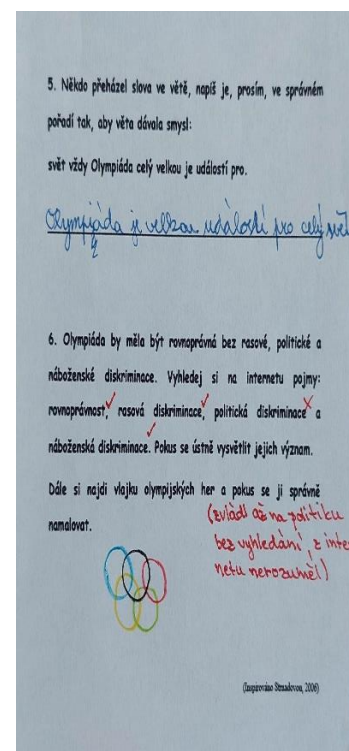 5. Někdo přeházel slova ve větě, napiš je, prosím, ve správném
pořadí tak, aby věta dávala smysl:
svět vždy Olympiáda celý velkou je událostí pro.
Olympiáda je velkou událostí pro celý svět
6. Olympiáda by měla být rovnoprávná bez rasové, politické a
náboženské diskriminace. Vyhledej si na internetu pojmy:
rovnoprávnost, rasová diskriminace, politická diskriminace a
náboženská diskriminace. Pokus se ústně vysvětlit jejich význam.
Dále si najdi vlajku olympijských her a pokus se ji správně
namalovat.
(zvládl až na politiku
bez vyhledání, z inter
netu nerozuměl)
(Inspirováno Straadovou, 2006)